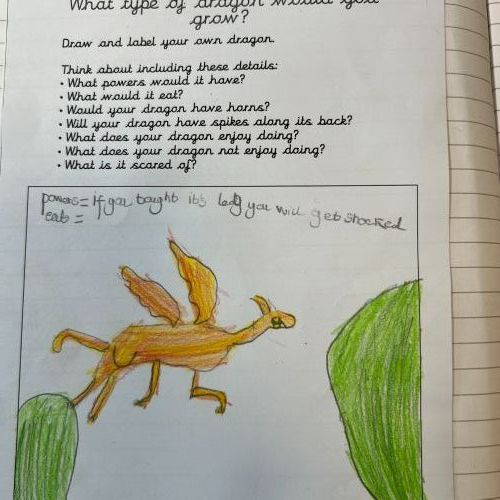 What type of dragon would you
grow?
Draw and label your own dragon.
Think about including these details:
• What powers would it have?
• What would it eat?
• Would your dragon have horns?
• Will your dragon have spikes along its back?
• What does your dragon enjoy doing?
• What does your dragon not enjoy doing?
• What is it scared of?
powers = if you tought it's body you will get shocked
eats =